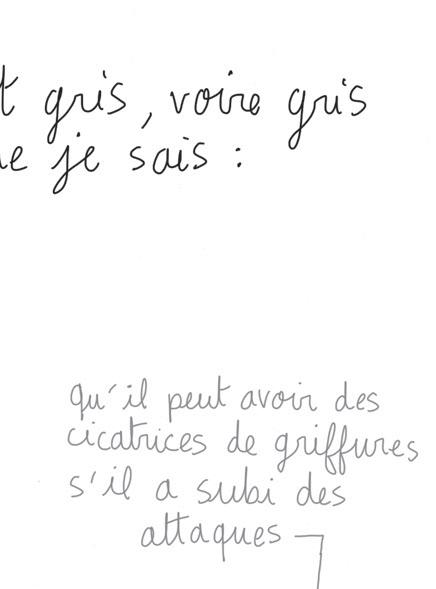 t gris, voire gris
e je sais :
qu'il peut avoir des
cicatrices de griffures
s'il a subi des
attaques